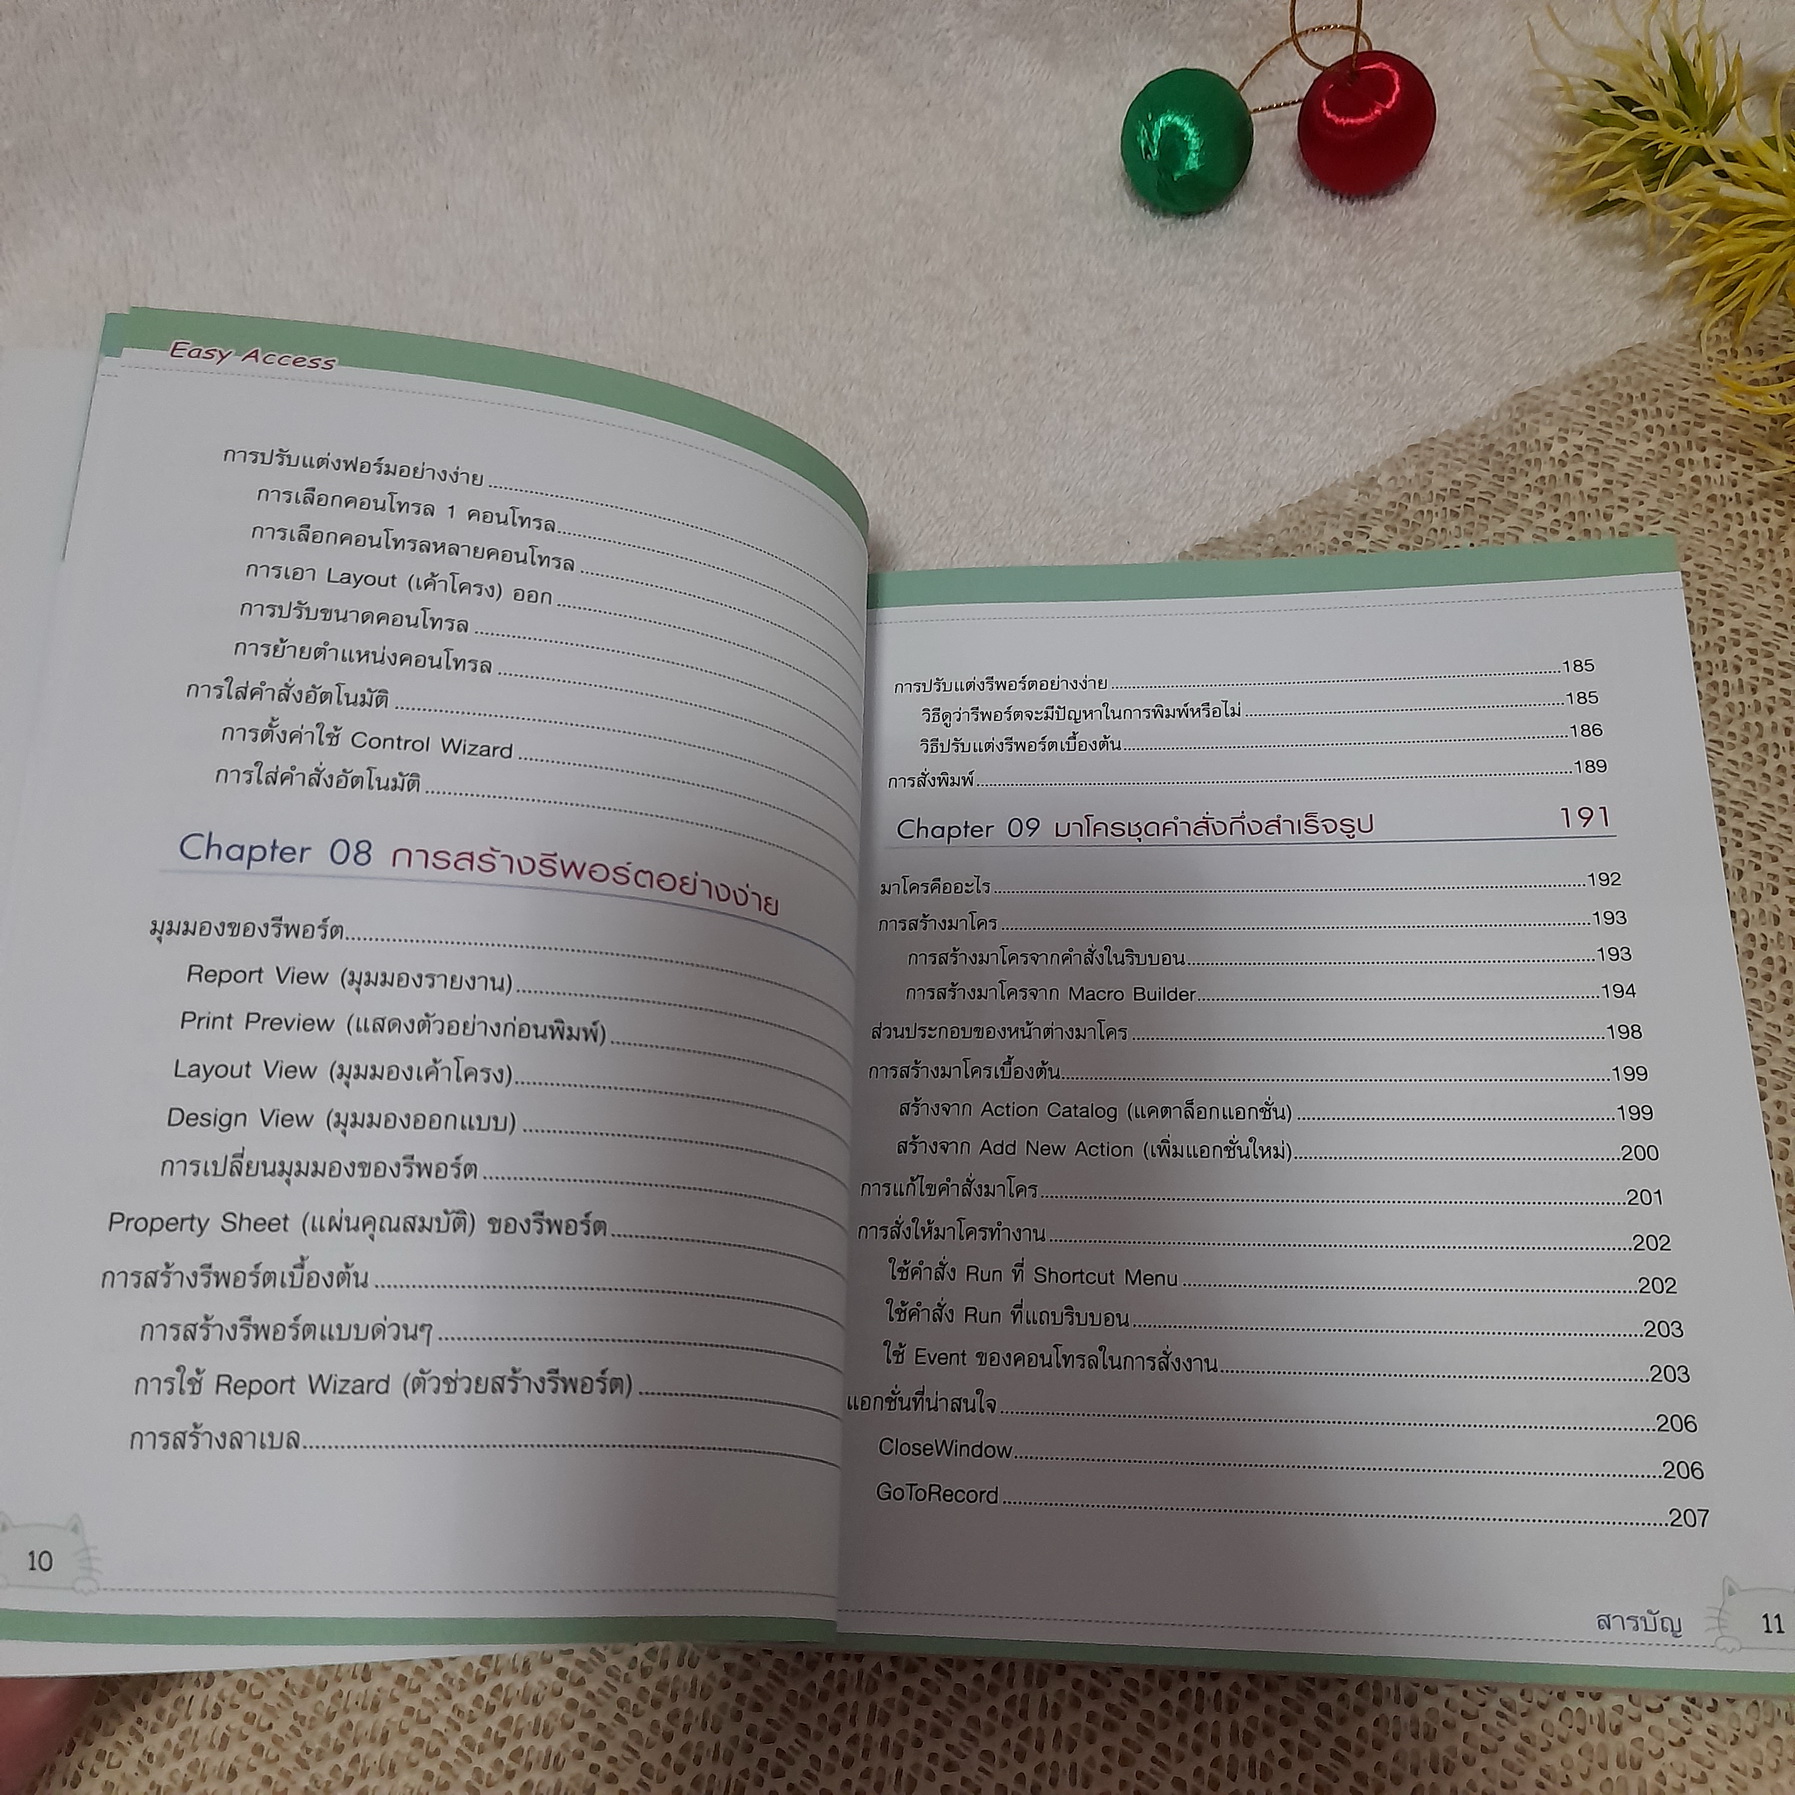 Easy Access
การปรับแต่งฟอร์มอย่างง่าย
การเลือกคอนโทรล 1 คอนโทรล
การเลือกคอนโทรลหลายคอนโทรล
การเอา Layout (เค้าโครง) ออก
การปรับขนาดคอนโทรล
การย้ายตำแหน่งคอนโทรล
การใส่คำสั่งอัตโนมัติ
การตั้งค่าใช้ Control Wizard
การใส่คำสั่งอัตโนมัติ
Chapter 08 การสร้างรีพอร์ตอย่างง่าย
มุมมองของรีพอร์ต
Report View (มุมมองรายงาน)
Print Preview (แสดงตัวอย่างก่อนพิมพ์)
Layout View (มุมมองเค้าโครง)
Design View (มุมมองออกแบบ)
การเปลี่ยนมุมมองของรีพอร์ต
Property Sheet (แผ่นคุณสมบัติ) ของรีพอร์ต
การสร้างรีพอร์ตเบื้องต้น
การสร้างรีพอร์ตแบบด่วนๆ
การใช้ Report Wizard (ตัวช่วยสร้างรีพอร์ต)
การสร้างลาเบล
10
การปรับแต่งรีพอร์ตอย่างง่าย 185
วิธีดูว่ารีพอร์ตจะมีปัญหาในการพิมพ์หรือไม่ 185
วิธีปรับแต่งรีพอร์ตเบื้องต้น 186
การสั่งพิมพ์ 189
Chapter 09 มาโครชุดคำสั่งกึ่งสำเร็จรูป 191
มาโครคืออะไร 192
การสร้างมาโคร 193
การสร้างมาโครจากคำสั่งในริบบอน 193
การสร้างมาโครจาก Macro Builder 194
ส่วนประกอบของหน้าต่างมาโคร 198
การสร้างมาโครเบื้องต้น 199
สร้างจาก Action Catalog (แคตาล็อกแอกชั่น) 199
สร้างจาก Add New Action (เพิ่มแอกชั่นใหม่) 200
การแก้ไขคำสั่งมาโคร 201
การสั่งให้มาโครทำงาน 202
ใช้คำสั่ง Run ที่ Shortcut Menu 202
ใช้คำสั่ง Run ที่แถบริบบอน 203
ใช้ Event ของคอนโทรลในการสั่งงาน 203
แอกชั่นที่น่าสนใจ 206
CloseWindow 206
GoToRecord 207
สารบัญ 11